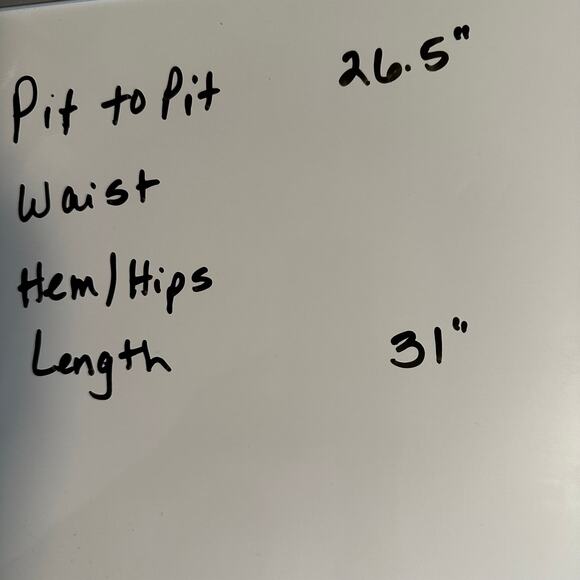 Pit to Pit 26.5"
Waist
Hem/Hips
Length 31"